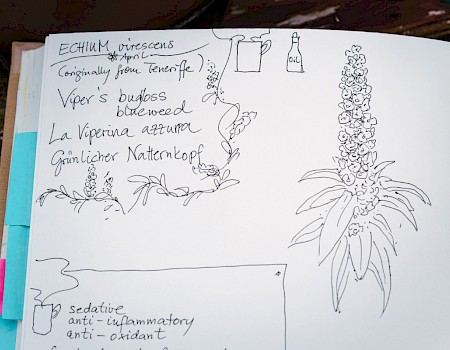 ECHIUM virescens
* April
(originally from Teneriffe)
Viper's bugloss
blueweed
La Viperina azzurra
Grünlicher Natternkopf
OIL
sedative
anti-inflammatory
anti-oxidant